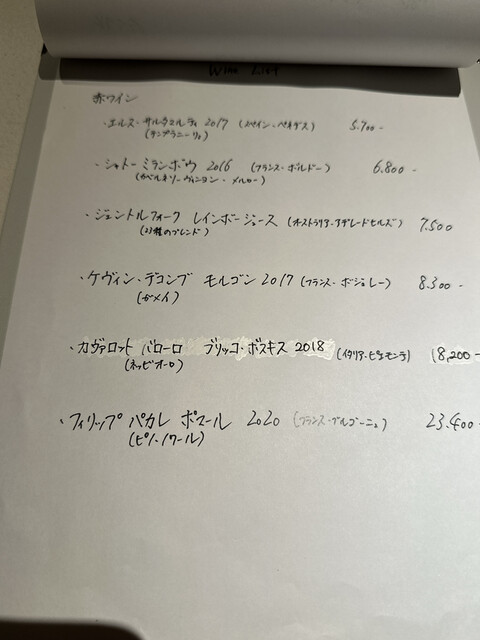 Wine List
赤ワイン
・エルス・サルタエルティ 2017 (スペイン・ペネデス) 5.700-
(テンプラニーリョ)
・シャトー ミランボウ 2016 (フランス・ボルドー) 6.800-
(カベルネソーヴィニヨン・メルロー)
・ジェントルフォーク レインボージュース (オーストラリア・アデレードヒルズ) 7.500
(23種のブレンド)
・ケヴィン・デコンブ モルゴン 2017 (フランス・ボジョレー) 8.300-
(ガメイ)
・カヴァロット バローロ ブリッコ・ボスキス 2018 (イタリア・ピエモンテ) 18,200-
(ネッビオーロ)
・フィリップ パカレ ポマール 2020 (フランス・ブルゴーニュ) 23.400-
(ピノ・ノワール)